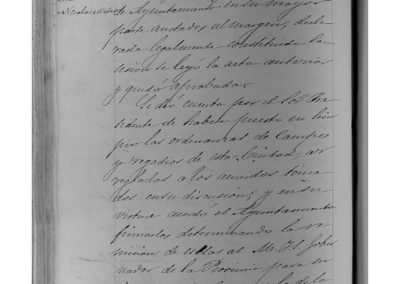 el Ayuntamiento en su mayor
parte anotados al margen, decla
rada legalmente constituida la
sesion se leyó la acta anterior
y quedó aprobada.
Se dio cuenta por el Sor. Pre
sidente de haber puesto en lim
pio las ordenanzas de Campos
y regadios de esta Ciudad, ar
regladas a los acuerdos toma
dos en su discusion; y en su
virtud acordó el Ayuntamiento
firmarlas determinando la re
mision de ellas al M. I. S. Gober
nador de la Provincia para su